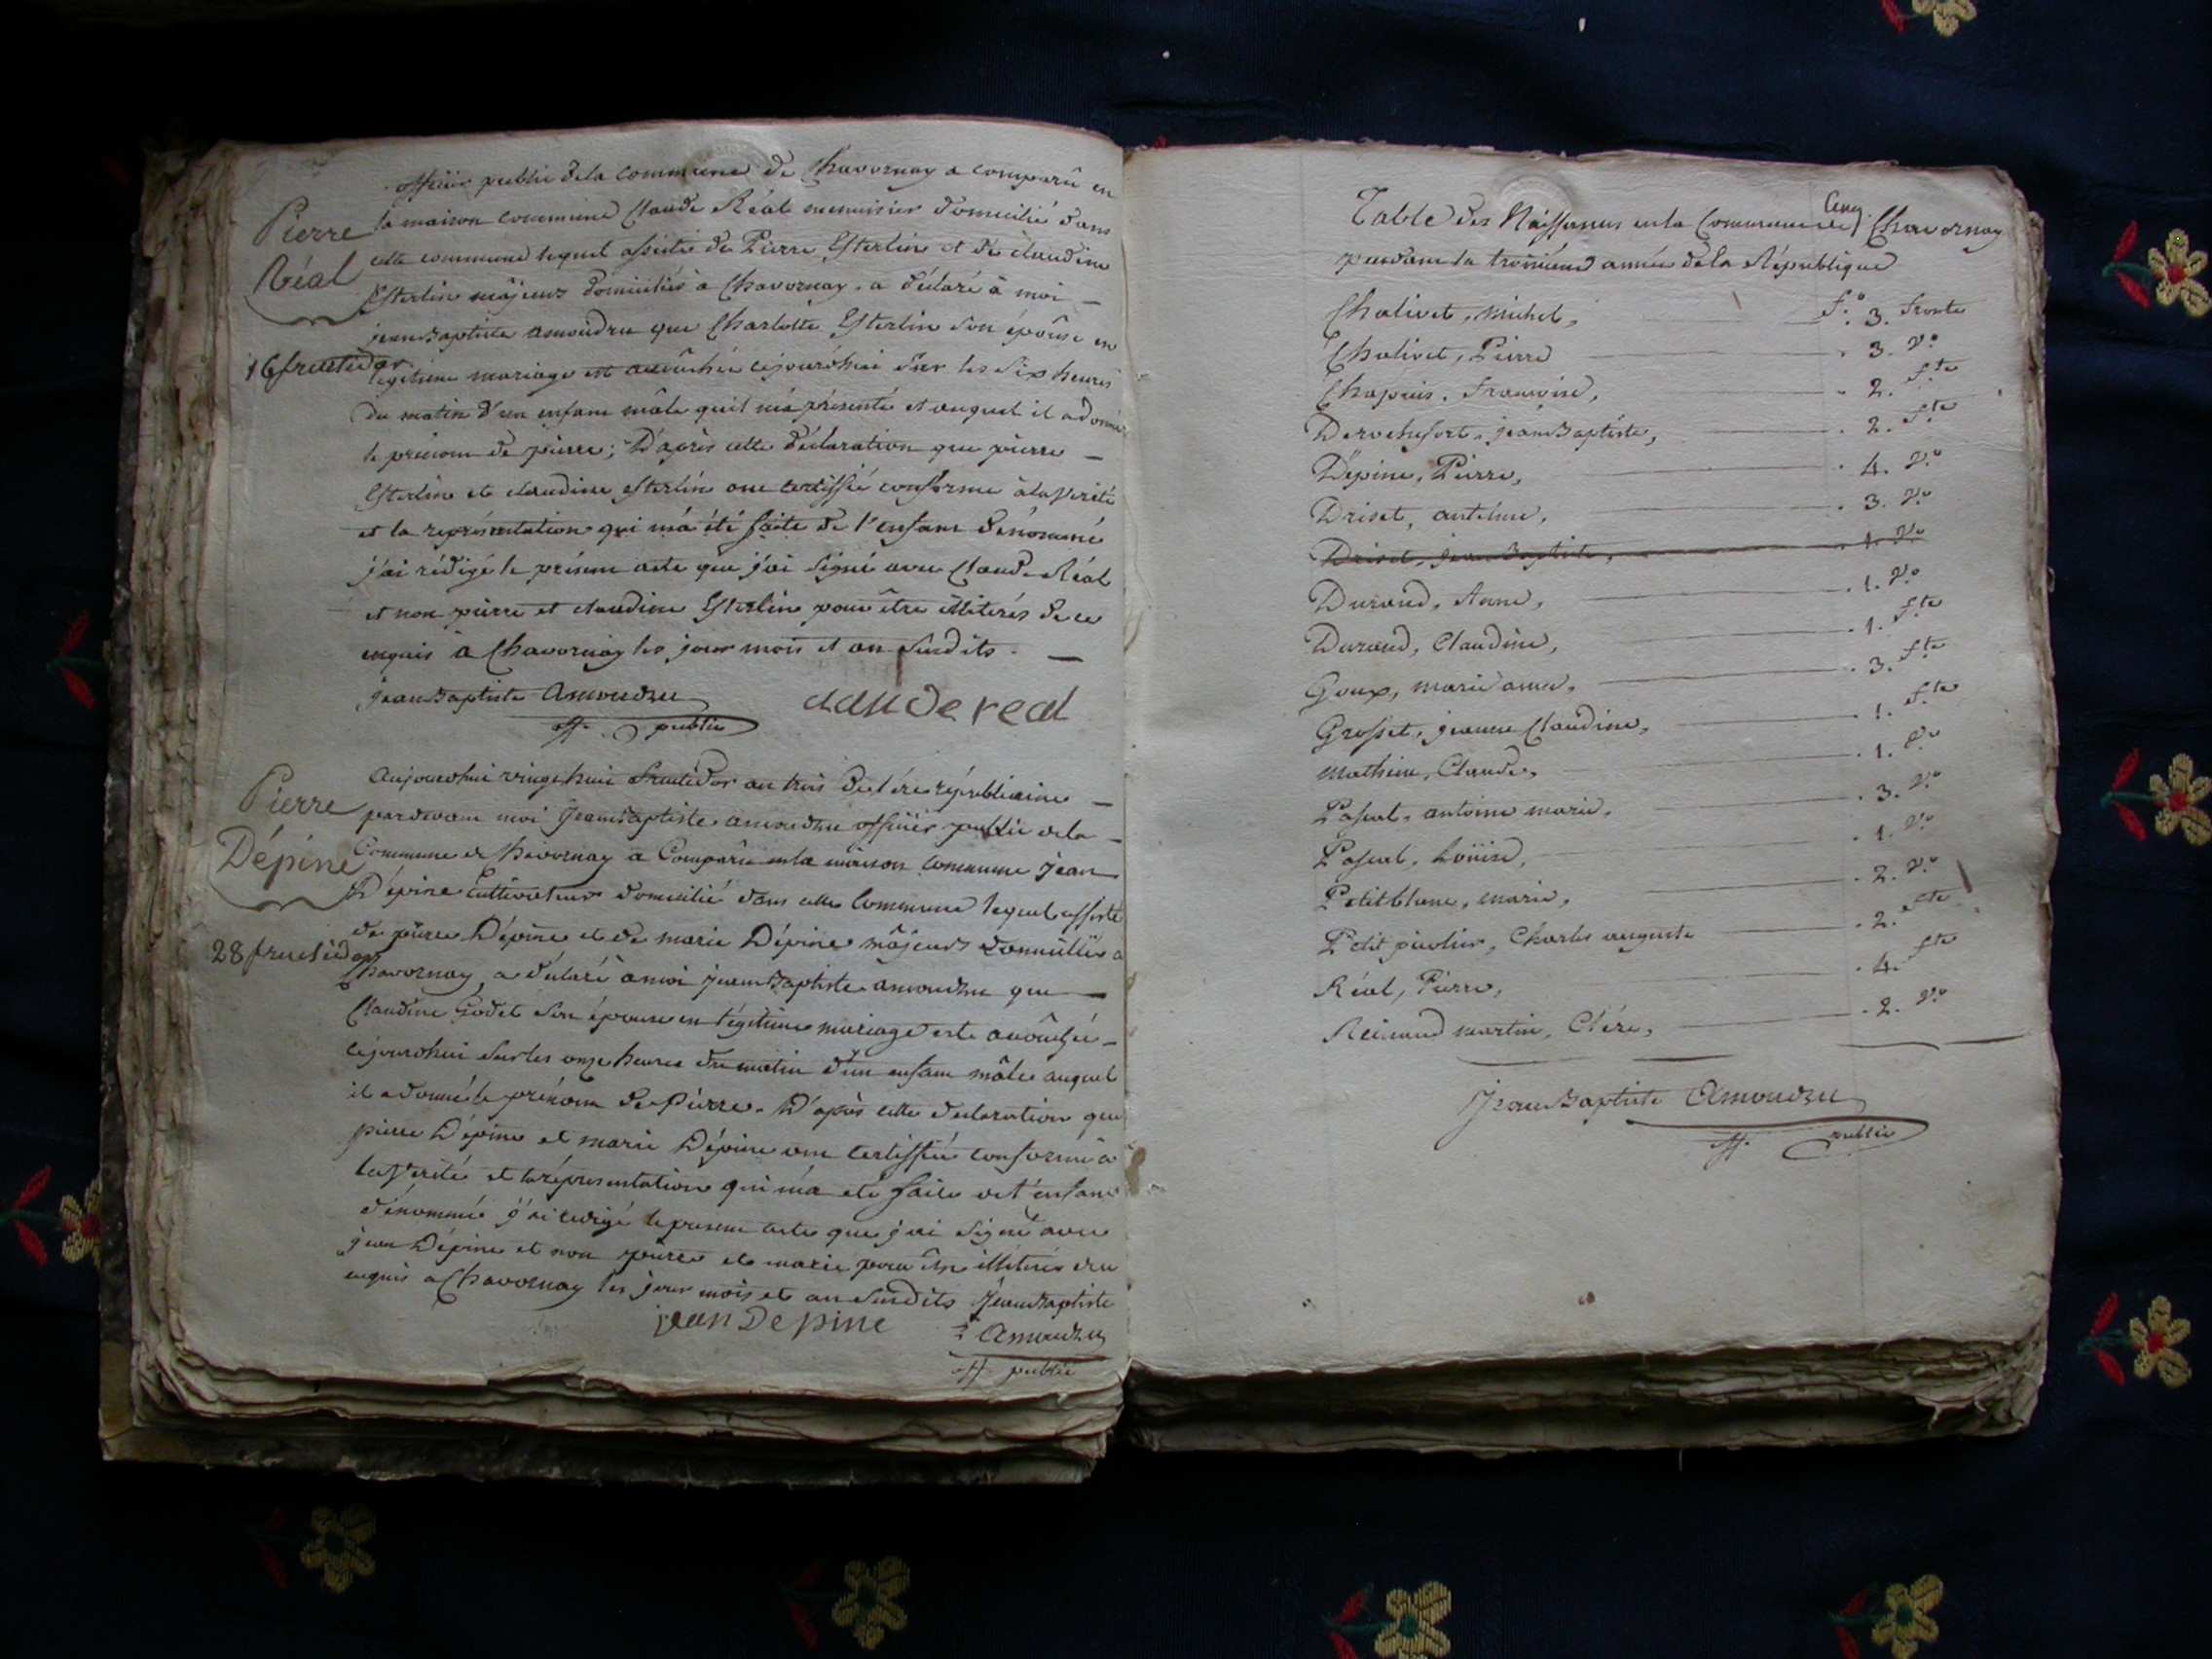 officier public de la commune de Chavornay a comparû en
la maison commune Claude Réal menuisier domicilié dans
cette commune lequel assisté de Pierre Esterlin et de claudine
Esterlin mâjeurs domiciliés à Chavornay, a déclaré à moi —
jean Baptiste amoudru que Charlotte Esterlin son épouse en
légitime mariage est accouchée cejourdhui sur les six heures
du matin d'un enfant mâle qu'il m'a présenté et auquel il a donné
le prénom de pierre; D'après cette déclaration que pierre —
Esterlin et claudine esterlin ont certiffié conforme à la vérité
et la représentation qui m'a été faite de l'enfant dénommé
j'ai rédigé le présent acte que j'ai signé avec Claude Réal
et non pierre et claudine Esterlin pour être illiterés de ce
enquis à Chavornay les jour mois et an susdits. —
Pierre
Réal
16 fructidor
jean Baptiste Amoudru
off. public
claude real
Aujourdhui vingt huit fructidor an trois de l'ére républicaine —
pardevant moi Jean Baptiste amoudru officier public de la —
Commune de Chavornay a Comparû en la maison commune Jean
Dépine Cultivateur domicilié dans cette Commune lequel assisté
de pierre Dépine et de marie Dépine mâjeurs domiciliés a
Chavornay, a déclaré à moi Jean Baptiste amoudru que —
Claudine Godet son épouse en légitime mariage est accouchée —
cejourdhui sur les onze heures du matin d'un enfant mâle auquel
il a donné le prénom de Pierre. D'après cette declaration que
pierre Dépine et marie Dépine ont certiffié conforme à
la vérité et la répresentation qui m'a eté faite de l'enfant
dénommé j'ai redigé le present acte que j'ai signé avec
jean Dépine et non pierre et marie pour être illiterés de ce
enquis a Chavornay les jour mois et an susdits Jean Baptiste
Pierre
Dépine
28 fructidor
jean Depine
Amoudru
off. public
Table des Naissances en la Commune de Chavornay
pendant la troisiéme année de la République
Chalivet, michel, f.º 3. fronte
Chalivet, Pierre 3. v.º
Chapuis, françoise, 2. f.te
Derochefort, jean Baptiste, 2. f.te
Dépine, Pierre, 4. v.º
Driset, antelme, 3. v.º
Driset, jean Baptiste, 1. v.º
Durand, Anne, 1. v.º
Durand, Claudine, 1. f.te
Goux, marie anne, 3. f.te
Grosset, jeanne Claudine, 1. f.te
Mathieu, Claude, 1. v.º
Pascal, antoine marie, 3. v.º
Pascal, Loüise, 1. v.º
Petitblanc, marie, 2. v.º
Petit , Charles auguste 2. f.te
Réal, Pierre, 4. f.te
martin, 2. v.º
Jean Baptiste Amoudru
off. public